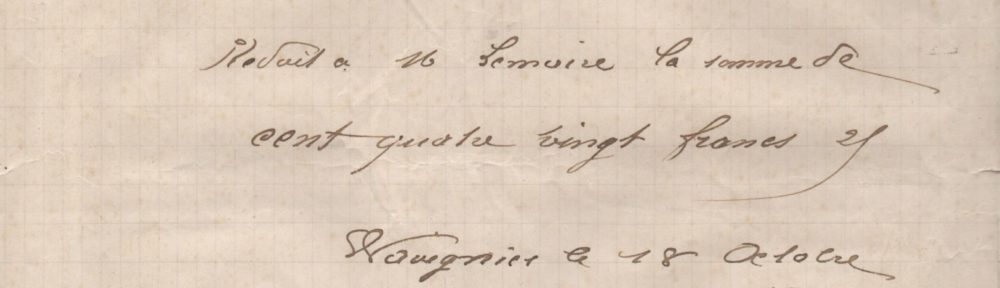 Redoit a M Lemoire la somme de
cent quatre vingt francs 25
le 18 Octobre